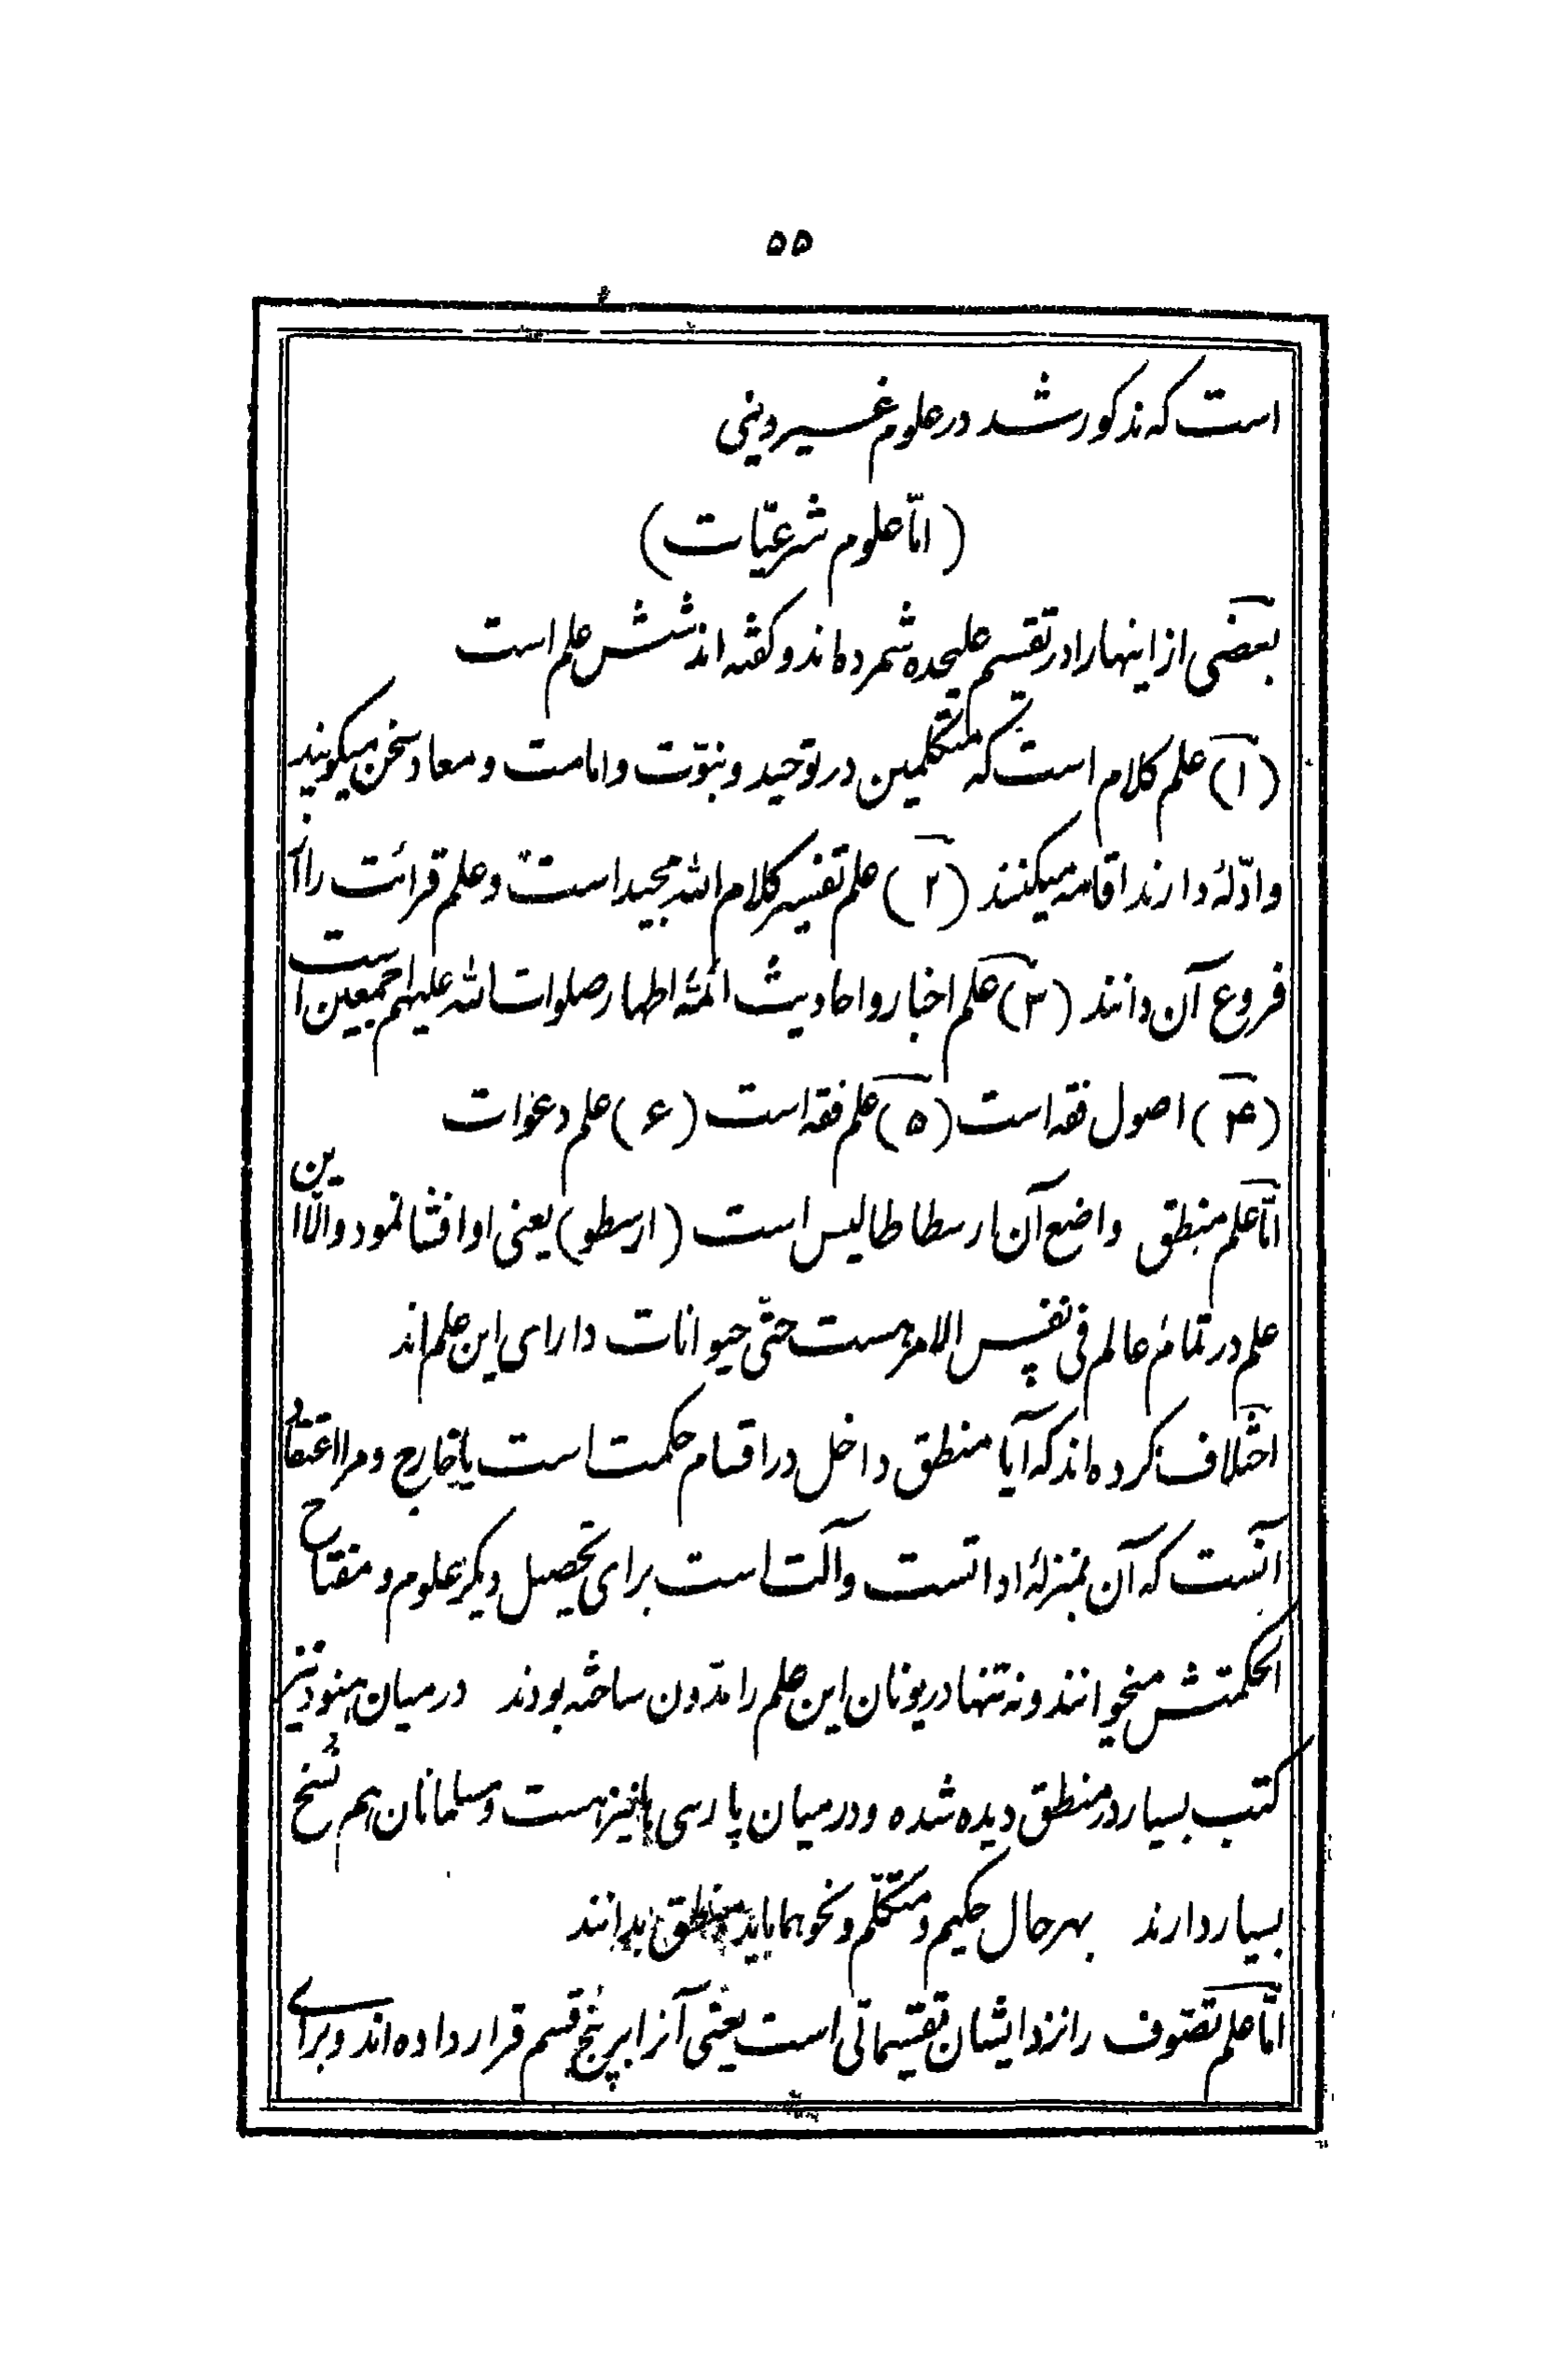 ۵۵
است که مذکور شد در علوم غیر دینی
(امّا علوم شرعیّات)
بعضی از اینها را در تقسیم علیحده شمرده‌اند و کفته‌اند شش علم است
(۱) علم کلام است که متکلمین در توحید و نبوّت و امامت و معاد سخن میکویند
و ادّلهٔ دارند اقامه میکنند (۲) علم تفسیر کلام الله مجید است و علم قرائت را از
فروع آن دانند (۳) علم اخبار و احادیث ائمّهٔ اطهار صلوات الله علیهم اجمعین است
(۴) اصول فقه است (۵) علم فقه است (۶) علم دعوات
امّا علم منطق واضع آن ارسطاطالیس است (ارسطو) یعنی او افشا نمود والّا این
علم در تمام عالم فی نفس الامر هست حتّی حیوانات دارای این علم‌اند
اختلاف کرده‌اند که آیا منطق داخل در اقسام حکمت است یا خارج و مرا اعتقاد
آنست که آن بمنزلهٔ ادانست وآلت است برای تحصیل دیکر علوم و مفتاح
الحکمتش میخوانند و نه تنها در یونان این علم را مدّون ساخته بودند در میان هنود نیز
کتب بسیار در منطق دیده شده و در میان پارسی‌ها نیز هست و مسلمانان هم نسخ
بسیار دارند بهر حال حکیم و متکلّم و نحوها باید منطق بدانند
امّا علم تصّوف را نزد ایشان تقسیماتی است یعنی آنرا بر پنج قسم قرار داده‌اند و برای